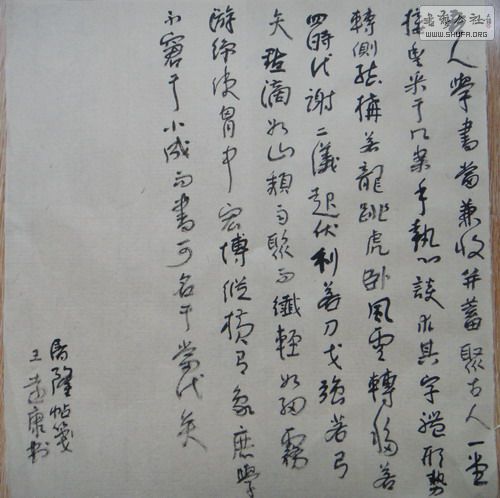 人學書當兼收并蓄聚古人一堂
接豐采于几案手執心談求其字體形勢
轉側結構若龍跳虎卧風雲轉移若
四時代謝二儀起伏利若刀戈強若弓
矢點滴如山頹雨聚而纖輕如霧
游絲使胷中宏博縱橫有象庶學
不窘于小成而書可名于當代矣
屠隆帖箋
王康
WWW.SHUFA.ORG